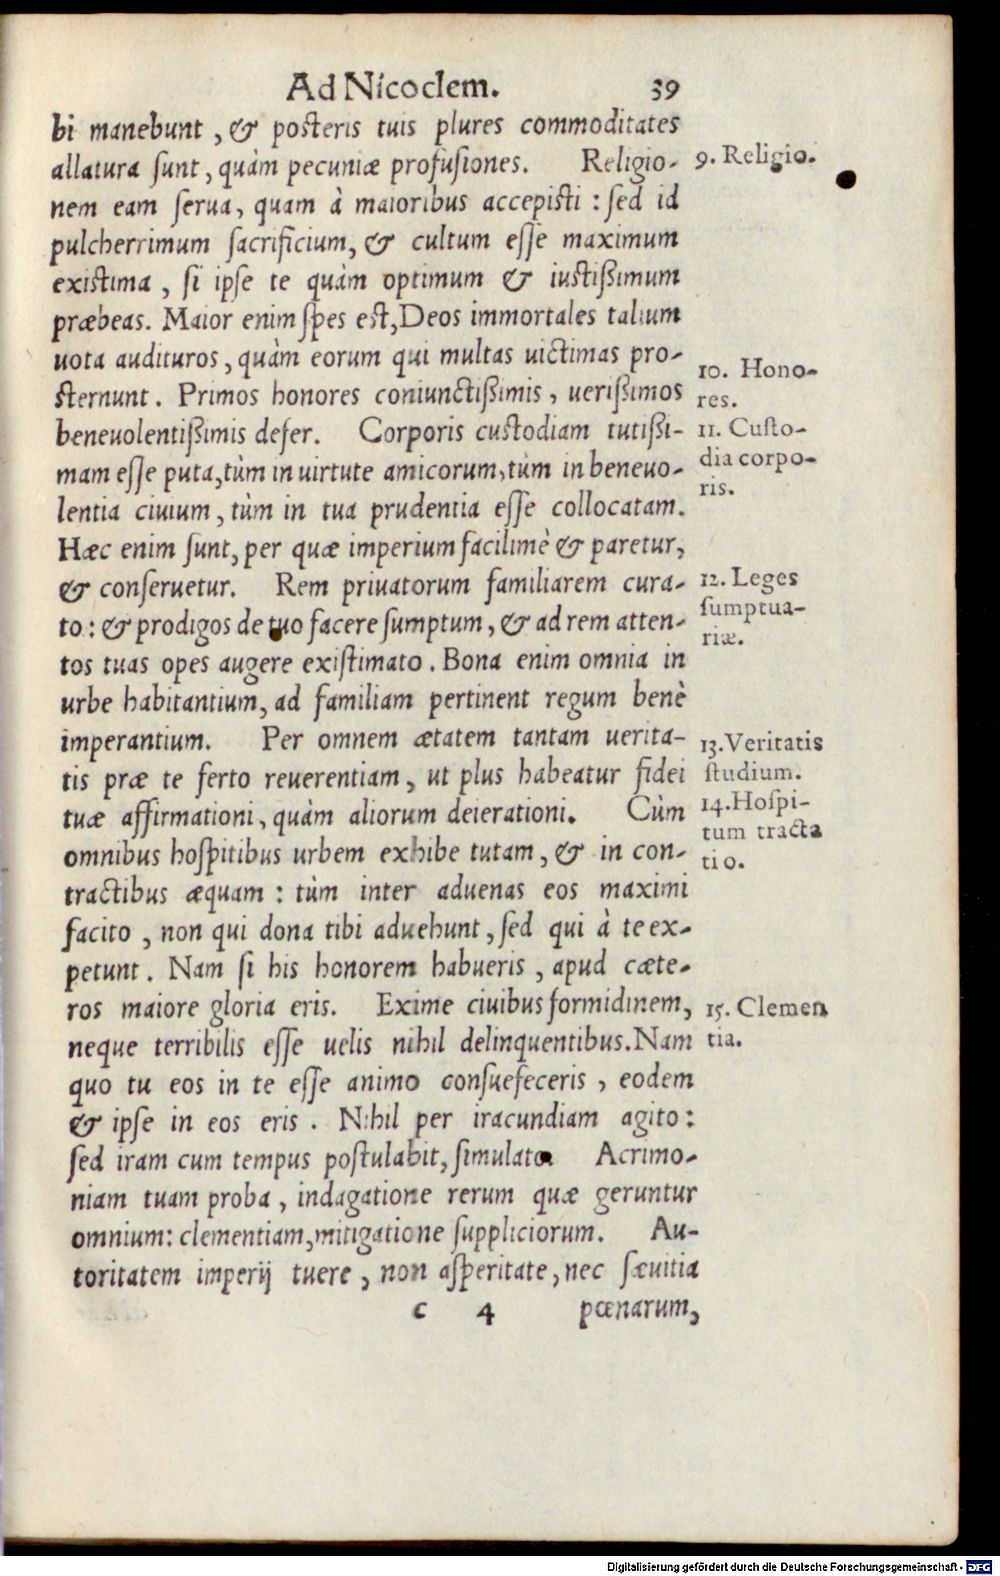 Ad Nicoclem. 39
bi manebunt, & posteris tuis plures commoditates
allatura sunt, quàm pecuniæ profusiones. Religio-
9. Religio.
nem eam serua, quam à maioribus accepisti: sed id
pulcherrimum sacrificium, & cultum esse maximum
existima, si ipse te quàm optimum & iustißimum
præbeas. Maior enim spes est, Deos immortales talium
uota audituros, quàm eorum qui multas uictimas pro-
10. Hono-
sternunt. Primos honores coniunctißimis, uerißimos
res.
beneuolentißimis defer. Corporis custodiam tutißi-
11. Custo-
mam esse puta, tùm in uirtute amicorum, tùm in beneuo-
dia corpo-
ris.
lentia ciuium, tùm in tua prudentia esse collocatam.
Hæc enim sunt, per quæ imperium facilimè & paretur,
& conseruetur. Rem priuatorum familiarem cura-
12. Leges
sumptua-
to: & prodigos de tuo facere sumptum, & ad rem atten-
riæ.
tos tuas opes augere existimato. Bona enim omnia in
urbe habitantium, ad familiam pertinent regum benè
imperantium. Per omnem ætatem tantam uerita-
13. Veritatis
tis præ te ferto reuerentiam, ut plus habeatur fidei
studium.
tuæ affirmationi, quàm aliorum deierationi. Cùm
14. Hospi-
tum tracta
omnibus hospitibus urbem exhibe tutam, & in con-
tio.
tractibus æquam: tùm inter aduenas eos maximi
facito, non qui dona tibi aduehunt, sed qui à te ex-
petunt. Nam si his honorem habueris, apud cæte-
ros maiore gloria eris. Exime ciuibus formidinem,
15. Clemen
neque terribilis esse uelis nihil delinquentibus. Nam
tia.
quo tu eos in te esse animo consuefeceris, eodem
& ipse in eos eris. Nihil per iracundiam agito:
sed iram cum tempus postulabit, simulato. Acrimo-
niam tuam proba, indagatione rerum quæ geruntur
omnium: clementiam, mitigatione suppliciorum. Au-
toritatem imperij tuere, non asperitate, nec sæuitia
c 4 pœnarum,
Digitalisierung gefördert durch die Deutsche Forschungsgemeinschaft - DFG